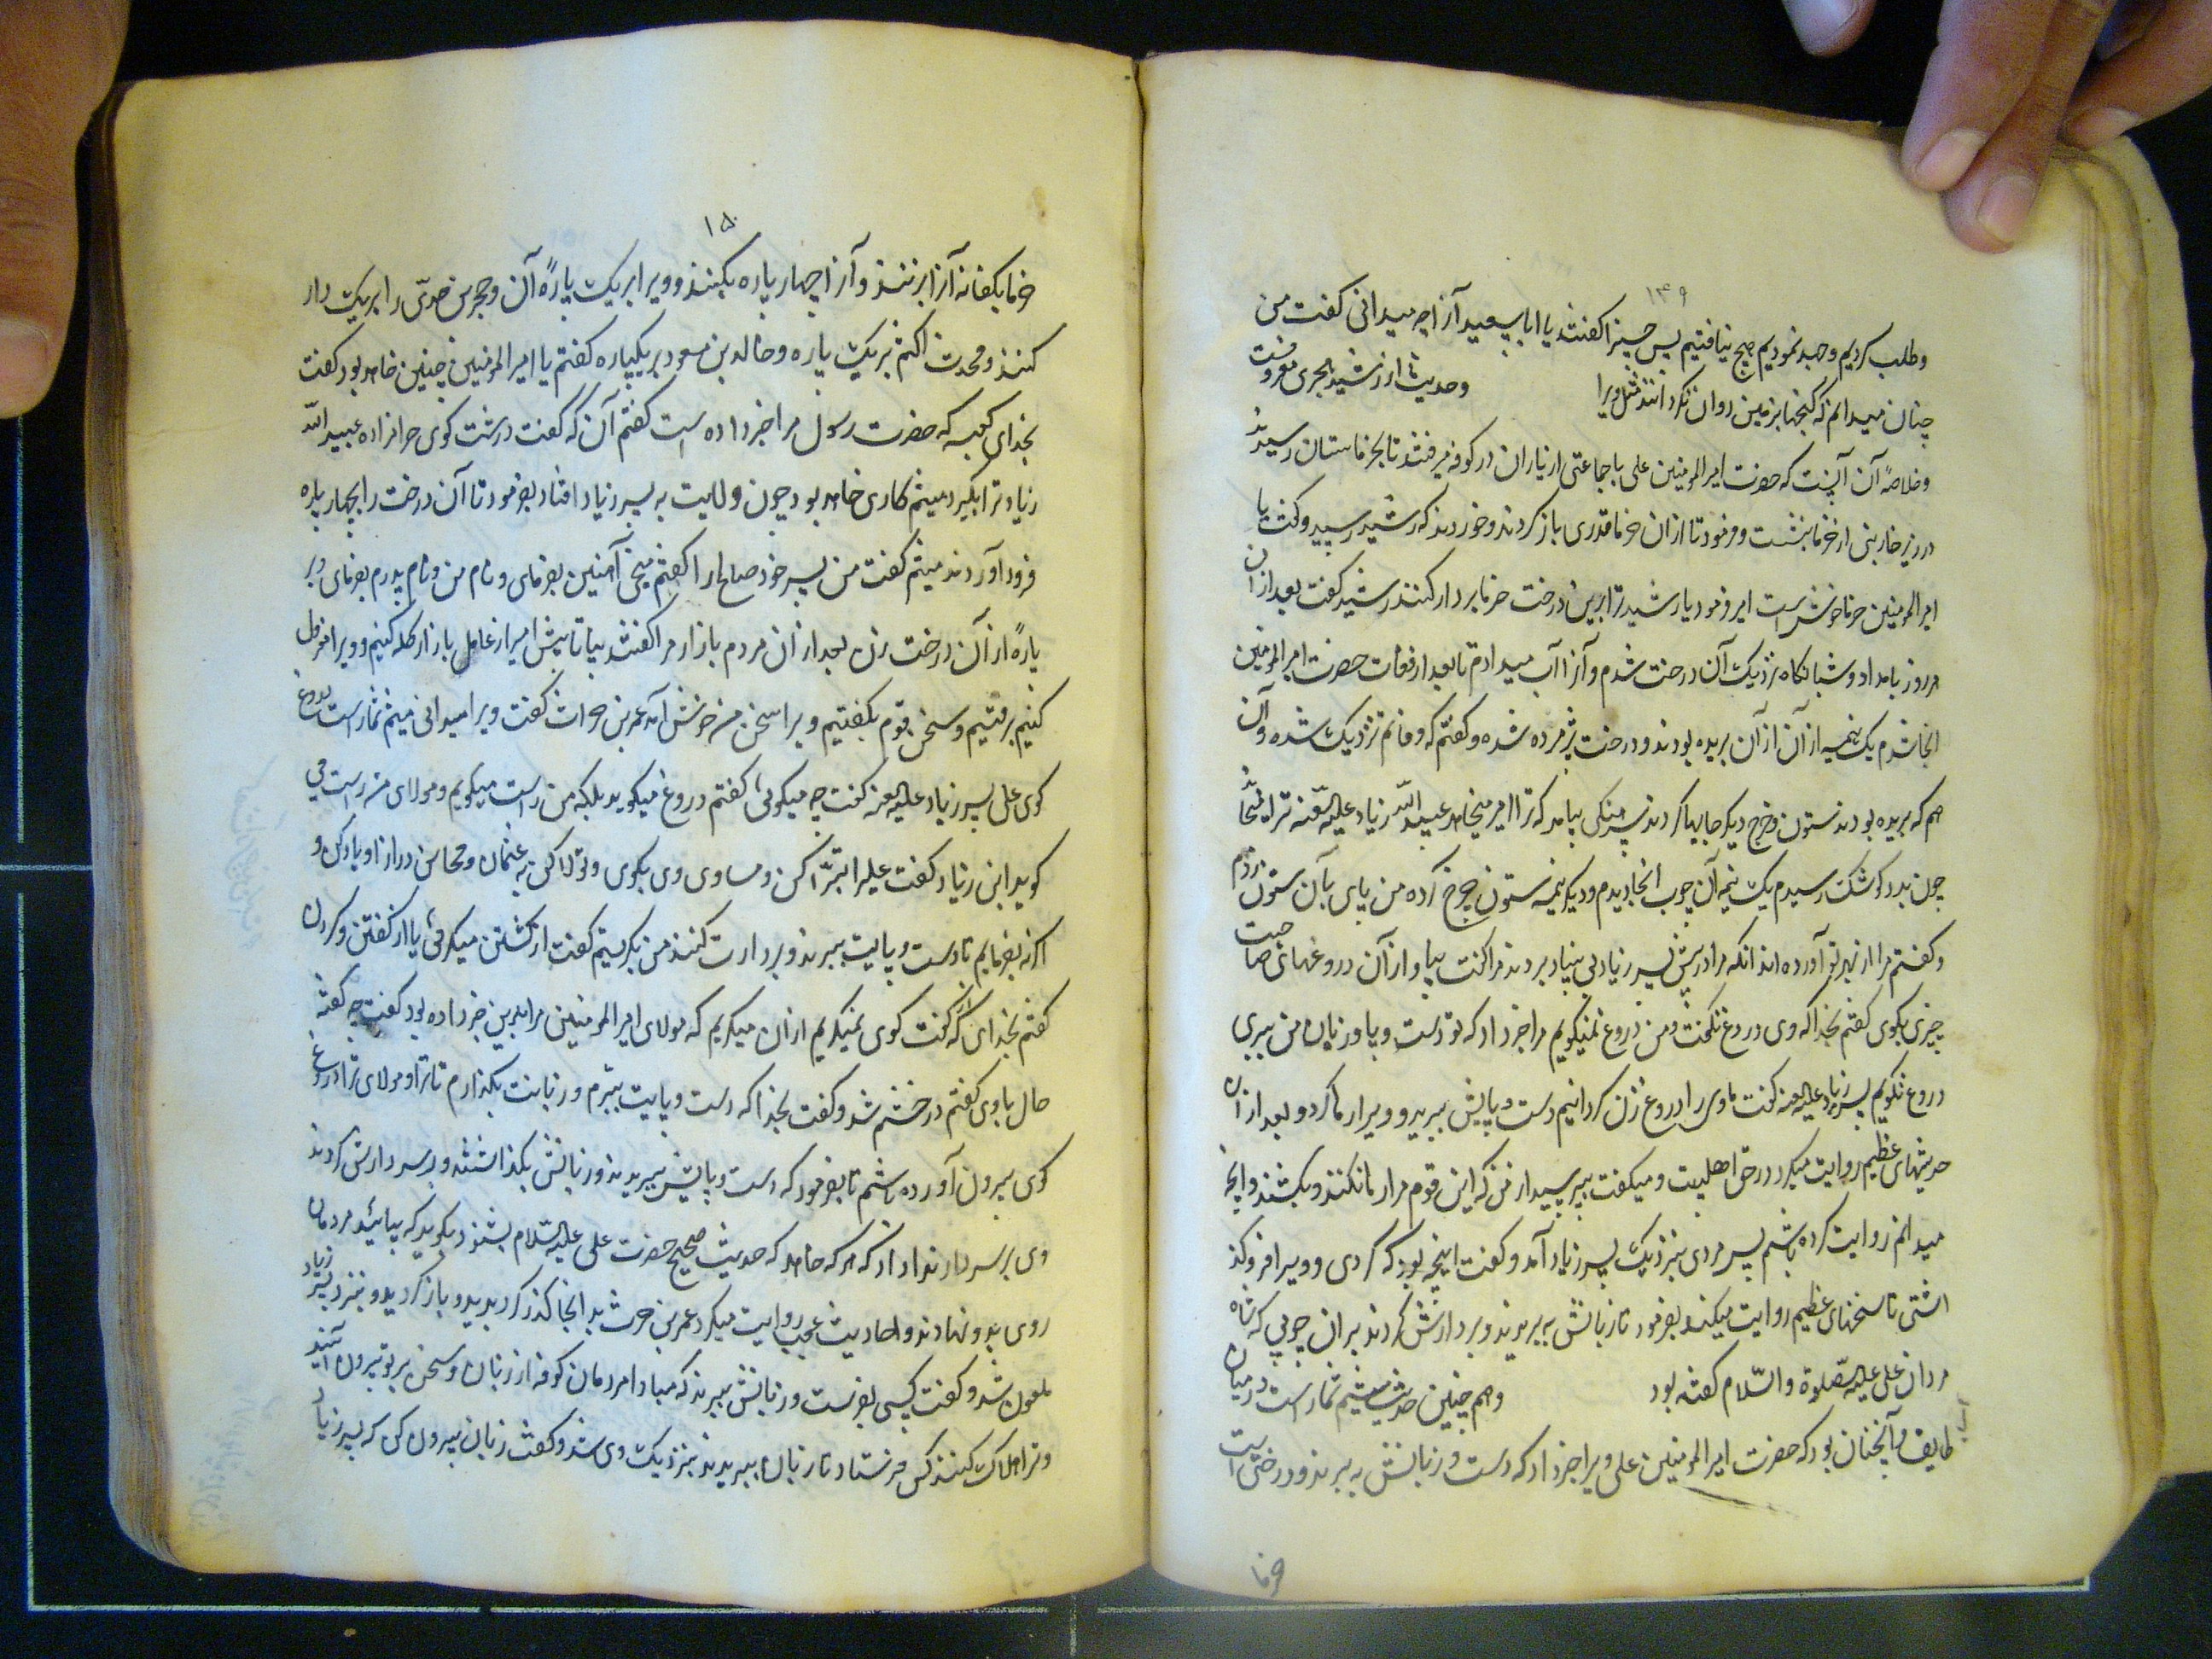 ۱۴۹
وطلب کردیم وجهد نمودیم هیچ نیافتیم پس چیز را کفتند یا ابا سعید آنرا چه میدانی کفت من
چنان میدانم که کنجها بزمین روان نکردانند مثل ویرا وحدیث از رشید هجری معروفست
وخلاصهٔ آن آنست که حضرت امیرالمومنین علی با جماعتی از یاران در کوفه میرفتند تا بخرماستان رسیدند
در زیر خاربنی از خرما بنشست وفرمود تا ازان خرما قدری باز کردند وخوردند که رشید رسید وکفت یا
امیرالمومنین خرما خوش است امیر فرمود یا رشید ترا برین درخت خرما بر دار کنند رشید کفت بعد از ان
هر روز بامداد وشبانکاه نزدیک آن درخت شدم وآنرا آب میدادم تا بعد از وفات حضرت امیرالمومنین
انجا شدم یک نیمه از آن از آن بریده بودند ودرخت پژمرده شده وکفتم که وفاتم نزدیک شده وآن
هم که بریده بودند ستون وچرخ دیکر جایها کردند سرهنکی بیامد که ترا امیر میخاهد عبیدالله زیاد علیه اللعنه ترا
چون بدر کوشک رسیدم یک نیمه آن چوب انجا دیدم ودیکر نیمه ستون چرخ کرده من پای بآن ستون زدم
وکفتم مرا از بهر تو آورده اند انکه مرا در پیش پسر زیاد بی بنیاد بردند مرا کفت بیا واز آن دروغهای صاحبت
چیزی بکوی کفتم بخدا که وی دروغ نکفت ومن دروغ نمیکویم مرا خبر داد که تو دست وپا وزبان من ببری
دروغ نکویم پسر زیاد علیه اللعنه کفت ما وی را دروغ زن کردانیم دست وپایش ببرید وویرا رها کرد وبعد از ان
حدیثهای عظیم روایت میکرد در حق اهلبیت ومیکفت بپرسید از من که این قوم مرا رها نکنند وبکشند وانچه
میدانم روایت کرده باشم پس مردی بنزدیک پسر زیاد آمد وکفت اینچه بود که کردی وویرا فرو کذ
اشتی تا سخنهای عظیم روایت میکند بفرمود تا زبانش به بریدند وبر دارش کردند بران چوبی که شاه
مردان علی علیه الصلوة والسلام کفته بود وهم چنین حدیث میثم تمار است در میان
طایفه وآنچنان بود که حضرت امیرالمومنین علی ویرا خبر داد که دست وزبانش به برند ودرختی است
خرما
۱۵۰
خرما بکفانه آنرا برنند وآنرا چهار پاره بکنند وویرا بر یک پارهٔ آن وحجر بن عدی را بر یک دار
کنند ومحمدبن اکثم بر یک پاره وخالد بن مسعود بر یکپاره کفتم یا امیرالمومنین چنین خاهد بود کفت
بخدای کعبه که حضرت رسول مرا خبر داده است کفتم آن که کفت درشت کوی حرامزاده عبیدالله
زیاد ترا بکیرد میثم کاری خاهد بود چون ولایت به پسر زیاد افتاد بفرمود تا آن درخت را بچهار پاره
فرود آوردند میثم کفت من پسر خود صالح را کفتم میخی آهنین بفرمای ونام من ونام پدرم بفرمای وبر
پارهٔ از آن درخت زن بعد از ان مردم بازار مرا کفتند بیا تا پیش امیر از عامل بازار کله کنیم وویرا معزول
کنیم برفتیم وسخن قوم بکفتیم ویرا سخن من خوش آمد عمر بن حریث کفت ویرا میدانی میثم تمار است دروغ
کوی علی پسر زیاد علیه اللعنه کفت چه میکوئی کفتم دروغ میکوید بلکه من راست میکویم ومولای من راست می
کوید ابن زیاد کفت علیرا تبرّا کن ومساوی وی بکوی وتولا کن به عثمان ومحاسن دراز او یاد کن و
اکرنه بفرمایم تا دست وپایت ببرند وبر دارت کنند من بکریستم کفت از کشتن میکرئی یا از کفتن وکردن
کفتم بخدای که کفت کوی نمیکریم ازان میکریم که مولای امیرالمومنین مرا بدین خبر داده بود کفت چه کفته
حال با وی کفتم در خشم شد وکفت بخدا که دست وپایت ببرم وزبانت بکذارم تا ترا ومولای ترا دروغ
کوی بیرون آورده باشم تا بفرمود که دست وپایش ببریدند وزبانش بکذاشتند وبر سر دارش کردند
وی بر سر دار ندا داد که هر که خاهد که حدیث صحیح حضرت علی علیه السلام بشنود بکوید که بیائید مردمان
روی بدو نهادند واحادیث عجب روایت میکرد عمر بن حریث بدانجا کذر کرد بدید وباز کردید وبنزد پسر زیاد
ملعون شد وکفت کسی بفرست وزبانش ببرند که مبادا مردمان کوفه از زبان وسخن بر تو بیرون آیند
وترا هلاک کنند کس فرستاد تا زبان ببریدند بنزدیک وی شد وکفت زبان بیرون کن که پسر زیاد